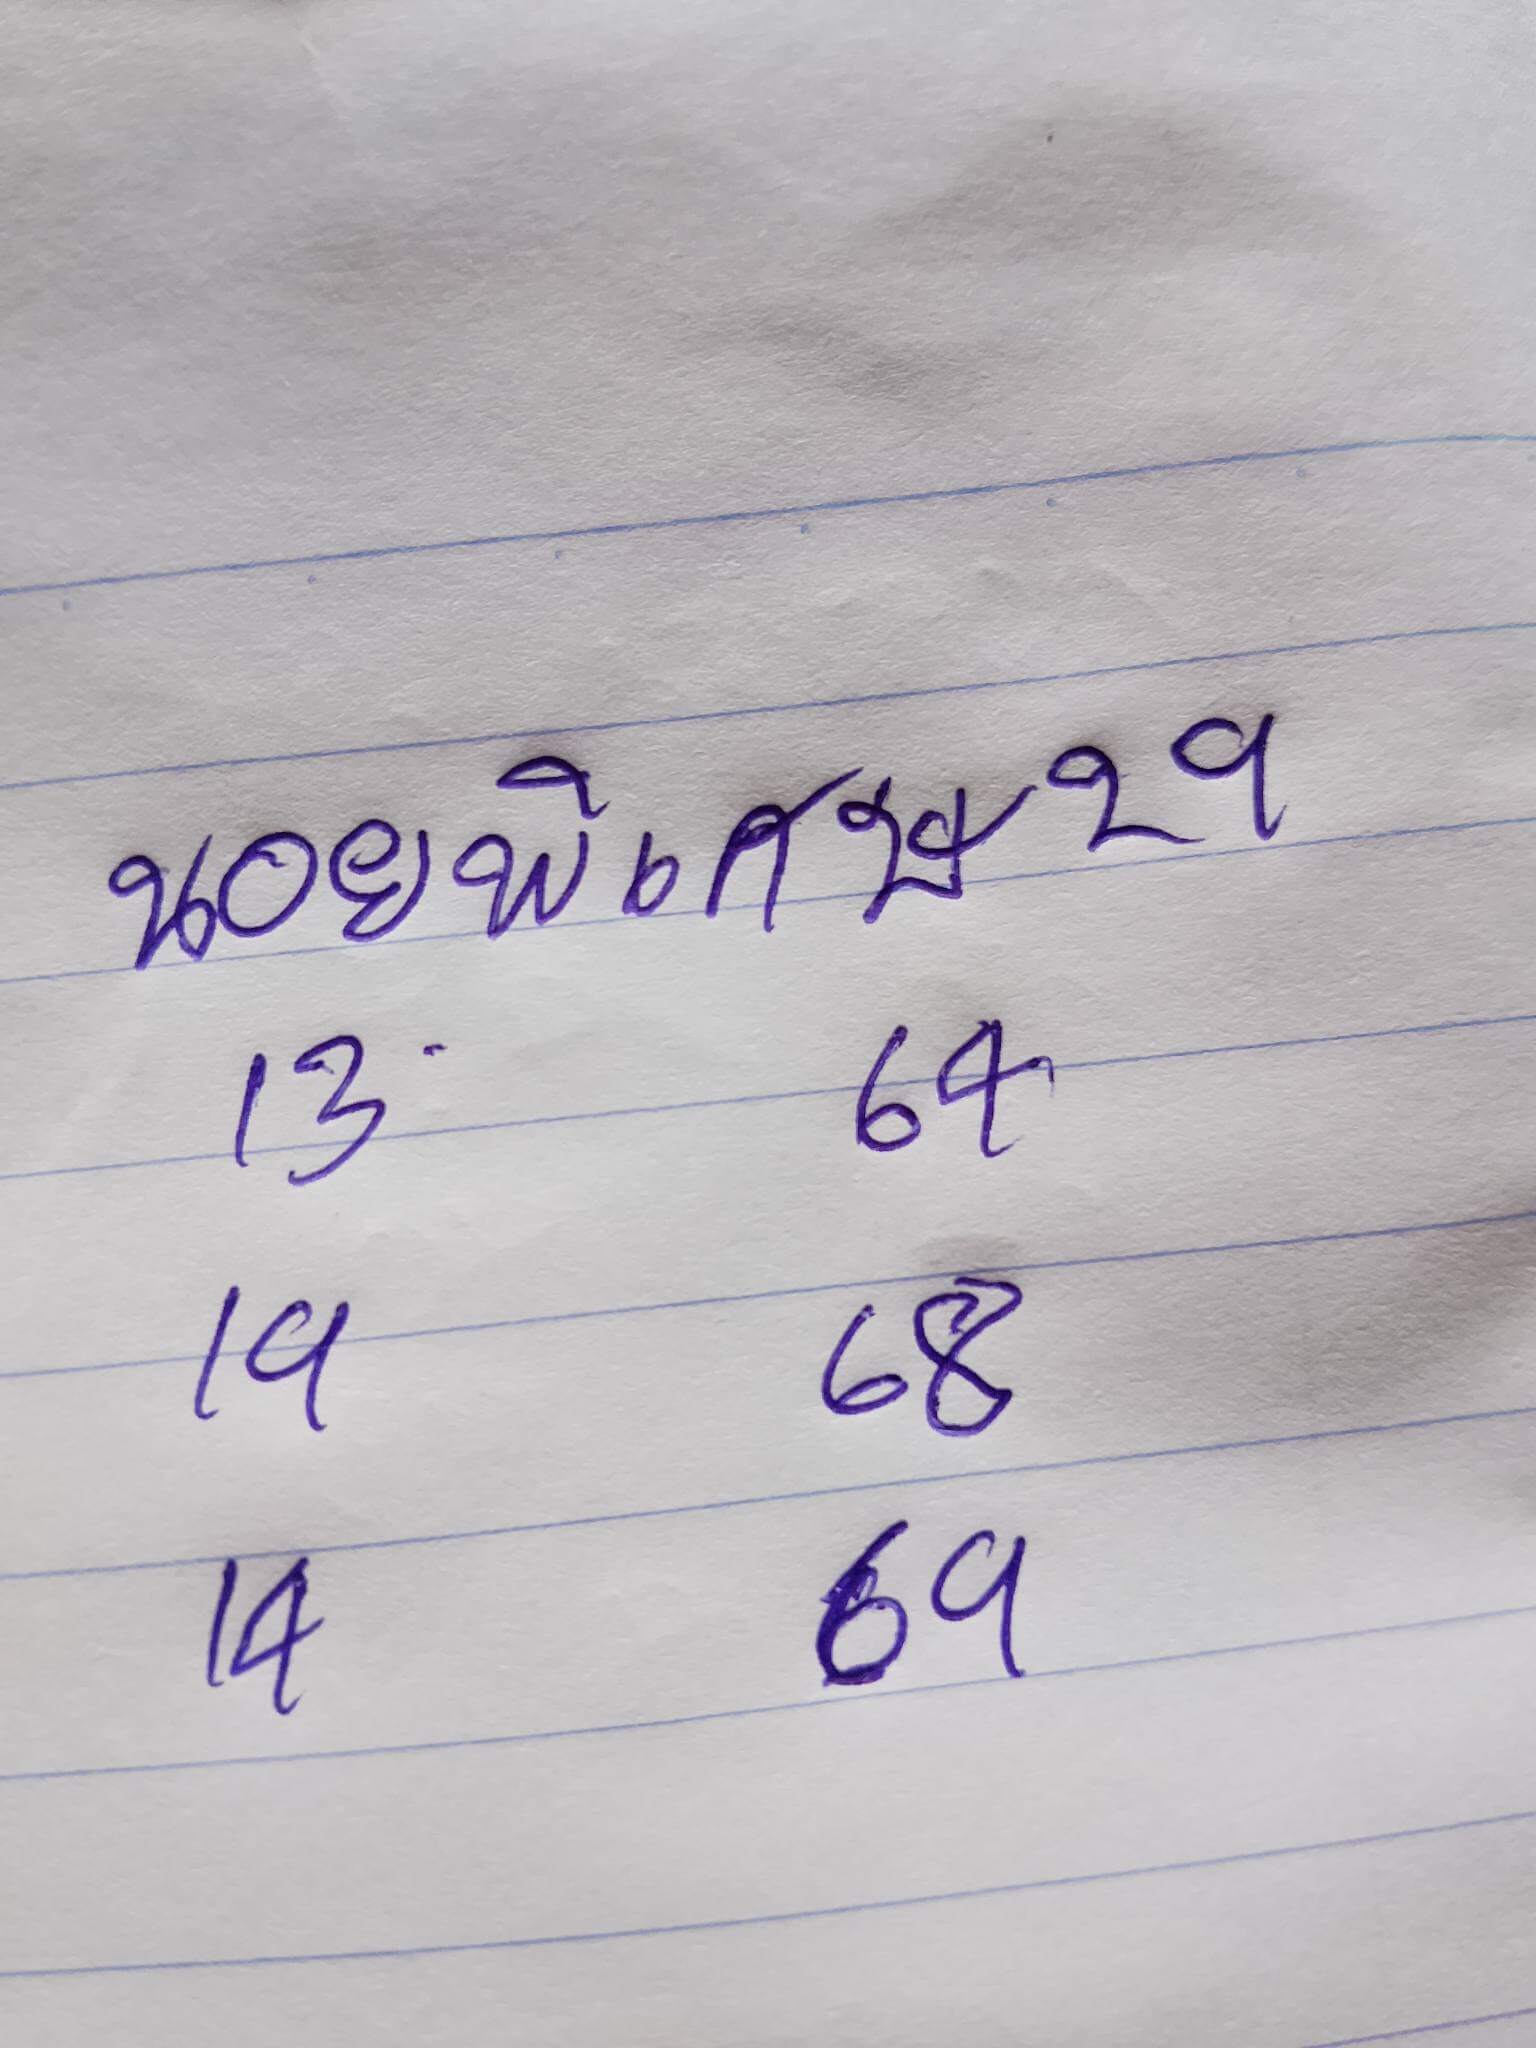 นอยพิเศษ 29
13 64
19 68
14 69